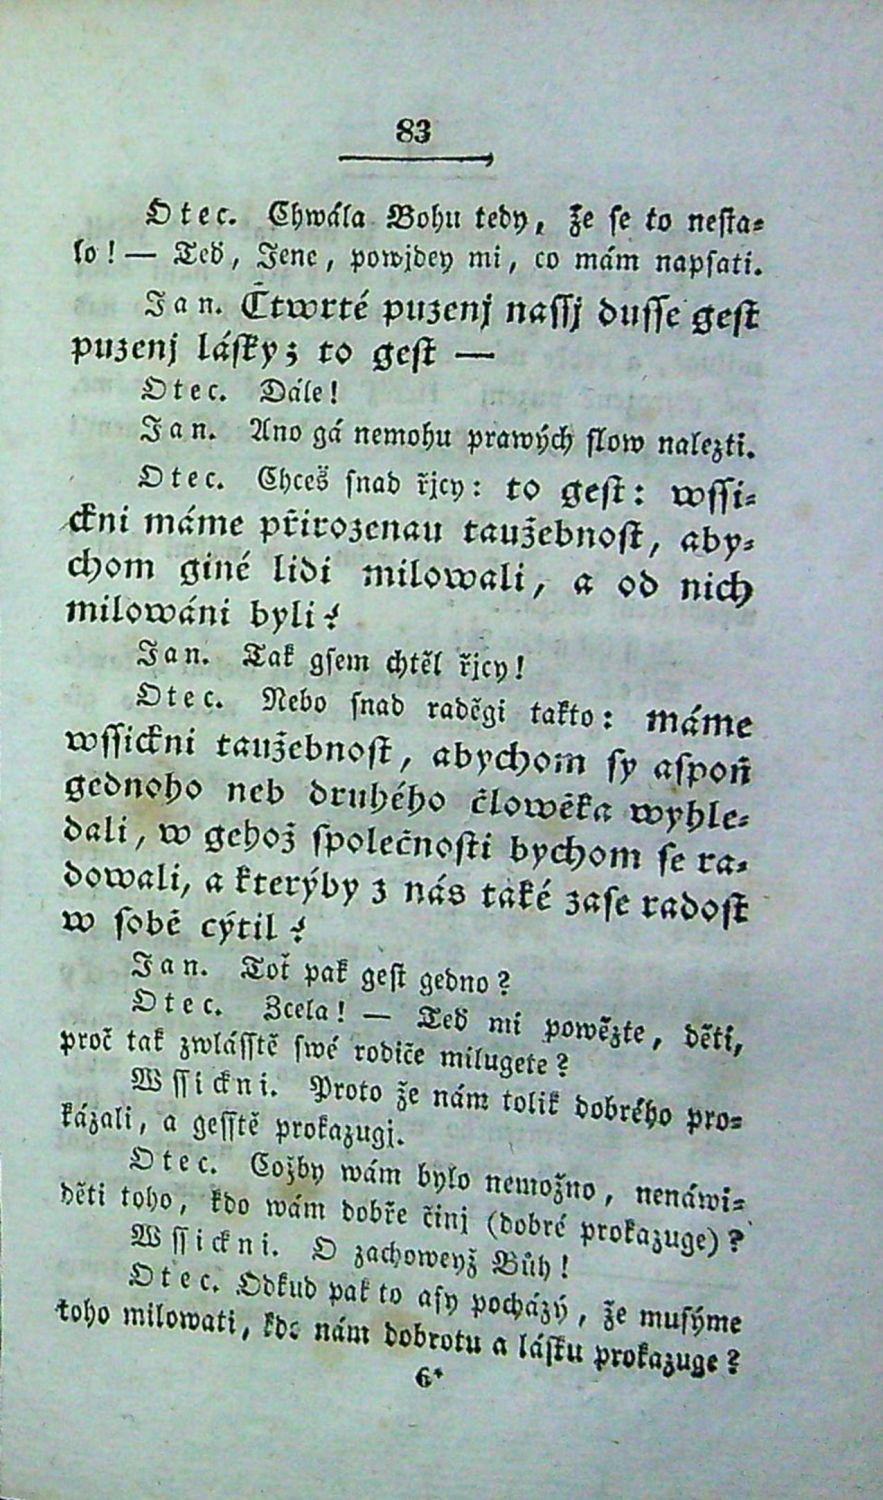 83
Otec. Chwála Bohu tedy, že se to nesta⸗
lo! — Teď, Jene, powjdey mi, co mám napsati.
Jan. Čtwrté puzenj nassj dusse gest
puzenj lásky; to gest —
Otec. Dále!
Jan. Ano gá nemohu prawých slow nalezti.
Otec. Chceš snad řjcy: to gest: wssi⸗
ckni máme přirozenau taužebnost, aby⸗
chom giné lidi milowali, a od nich
milowáni byli?
Jan. Tak gsem chtěl řjcy!
Otec. Nebo snad raděgi takto: máme
wssickni taužebnost, abychom sy aspoň
gednoho neb druhého člowěka wyhle⸗
dali, w gehož společnosti bychom se ra⸗
dowali, a kterýby z nás také zase radost
w sobě cýtil?
Jan. Toť pak gest gedno?
Otec. Zcela! — Teď mi powězte, děti,
proč tak zwlásstě swé rodiče milugete?
Wssickni. Proto že nám tolik dobrého pro⸗
kázali, a gesstě prokazugj.
Otec. Cožby wám bylo nemožno, nenáwi⸗
děti toho, kdo wám dobře činj (dobré prokazuge)?
Wssickni. O zachoweyž Bůh!
Otec. Odkud pak to asy pocházý, že musýme
toho milowati, kdo nám dobrotu a lásku prokazuge?
6*